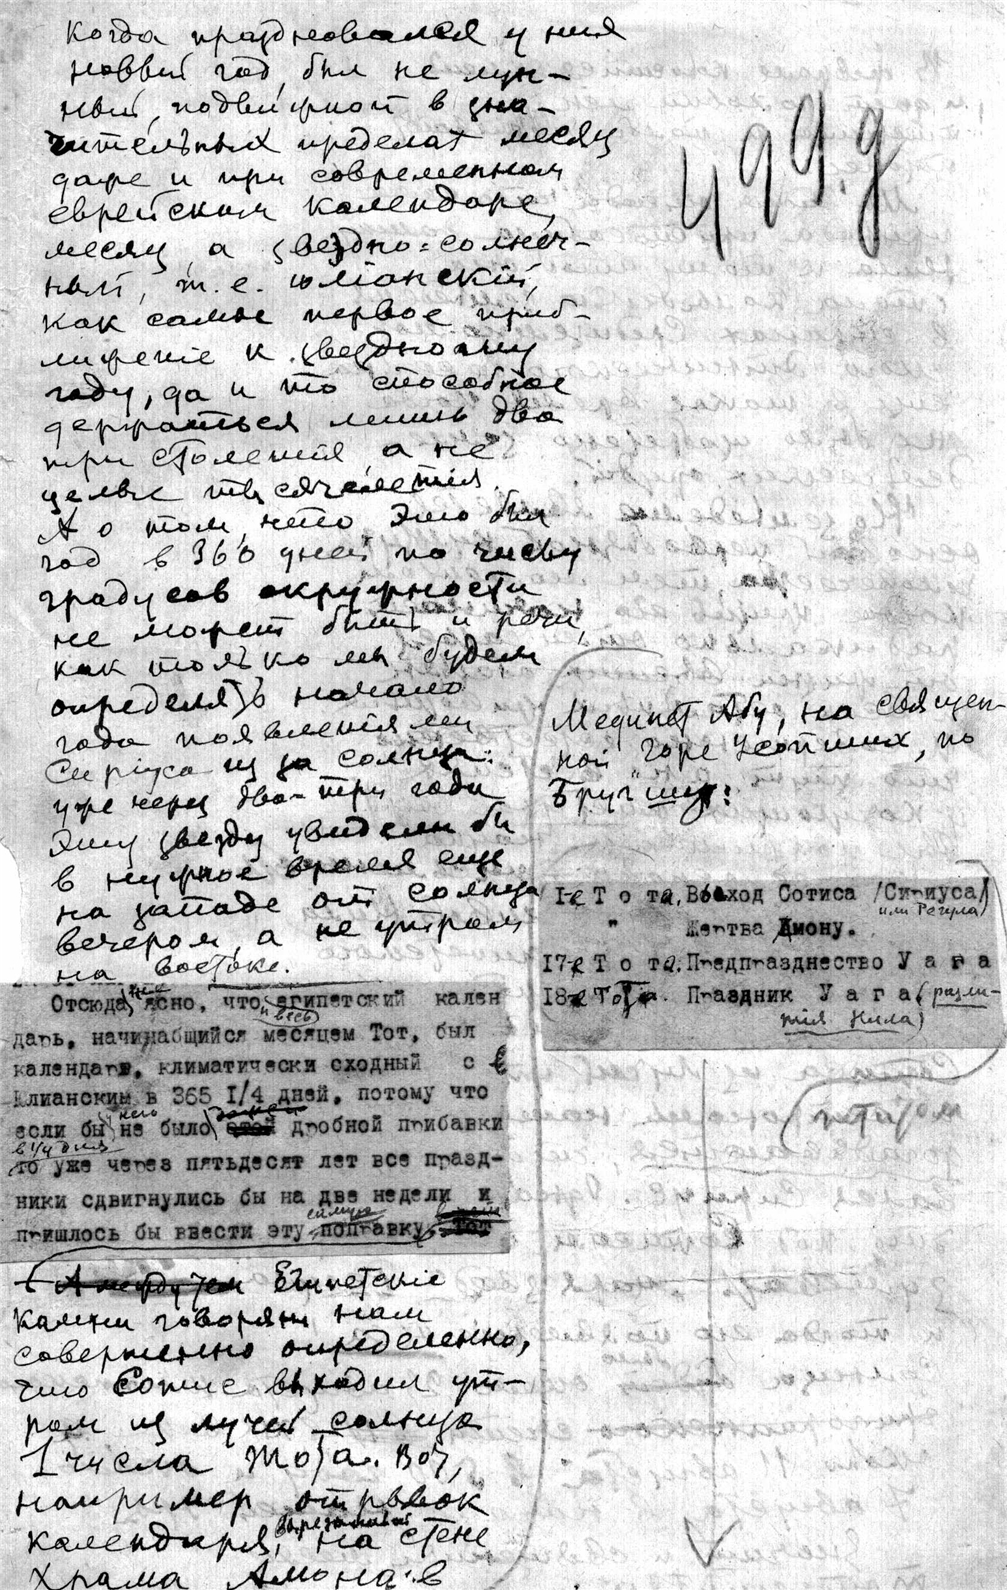 499.д
Когда праздновался у них
новый год, был не лун-
ный, подвижной в зна-
чительных пределах месяц
даже и при современном
еврейском календаре,
месяц, а звездно=солнеч-
ный, т.е. юліанскій,
как самое первое приб-
лиженіе к звездному
году, да и то способное
держаться лишь два
три столетія, а не
целые тысячелетія.
А о том, что это был
год в 360 дней по числу
градусов окружности
не может быть и речи,
как только мы будем
определять начало
года появленіями
Сиріуса из за солнца:
уже через два-три года
эту звезду увидели бы
в нужное время еще
на западе от солнца
вечером, а не утром
на востоке.
Отсюда же ясно, что и весь египетский кален
дарь, начинабщийся месяцем Тот, был
календарь, климатически сходный с
Юлианским в 365 I/4 дней, потому что
если бы у него не было этой дробной прибавки
в 1/4 дня
то уже через пятьдесят лет все празд-
ники сдвигнулись бы на две недели и
пришлось бы ввести эту самую поправку. Тот
А между тем Египетскіе
камни говорят нам
совершенно определенно,
что Сотис выходил ут-
ром из лучей солнца
1 числа Тота. Вот,
например отрывок
календаря, вырезанный на стене
храма Амона в
Мединет Абу, на священ-
ной горе усопших, по
Бругшу:
I-е Т о т а. Восход Сотиса /Сириуса/
или Регула
" Жертва Амону.
17-е Т о т а. Предпразднество У а г а
18-е Тота. Праздник У а г а (разли-
тія Нила)